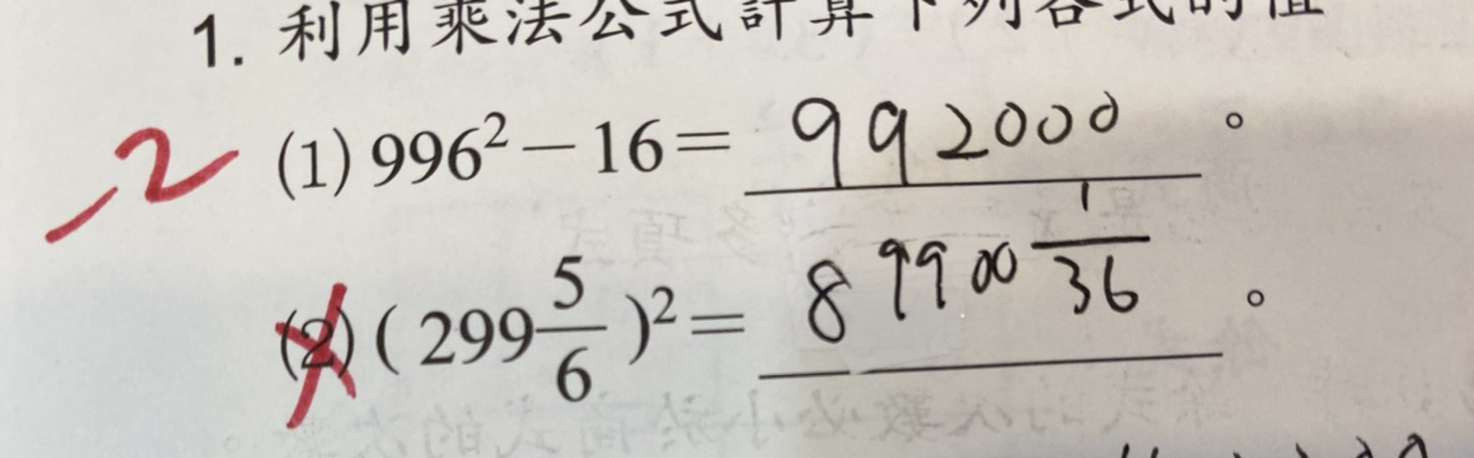 1. 利用乘法公式計算下列各式的值
-2
(1) 996² − 16 = 992000 。
(2) ( 299 5/6 )² = 89900 1/36 。